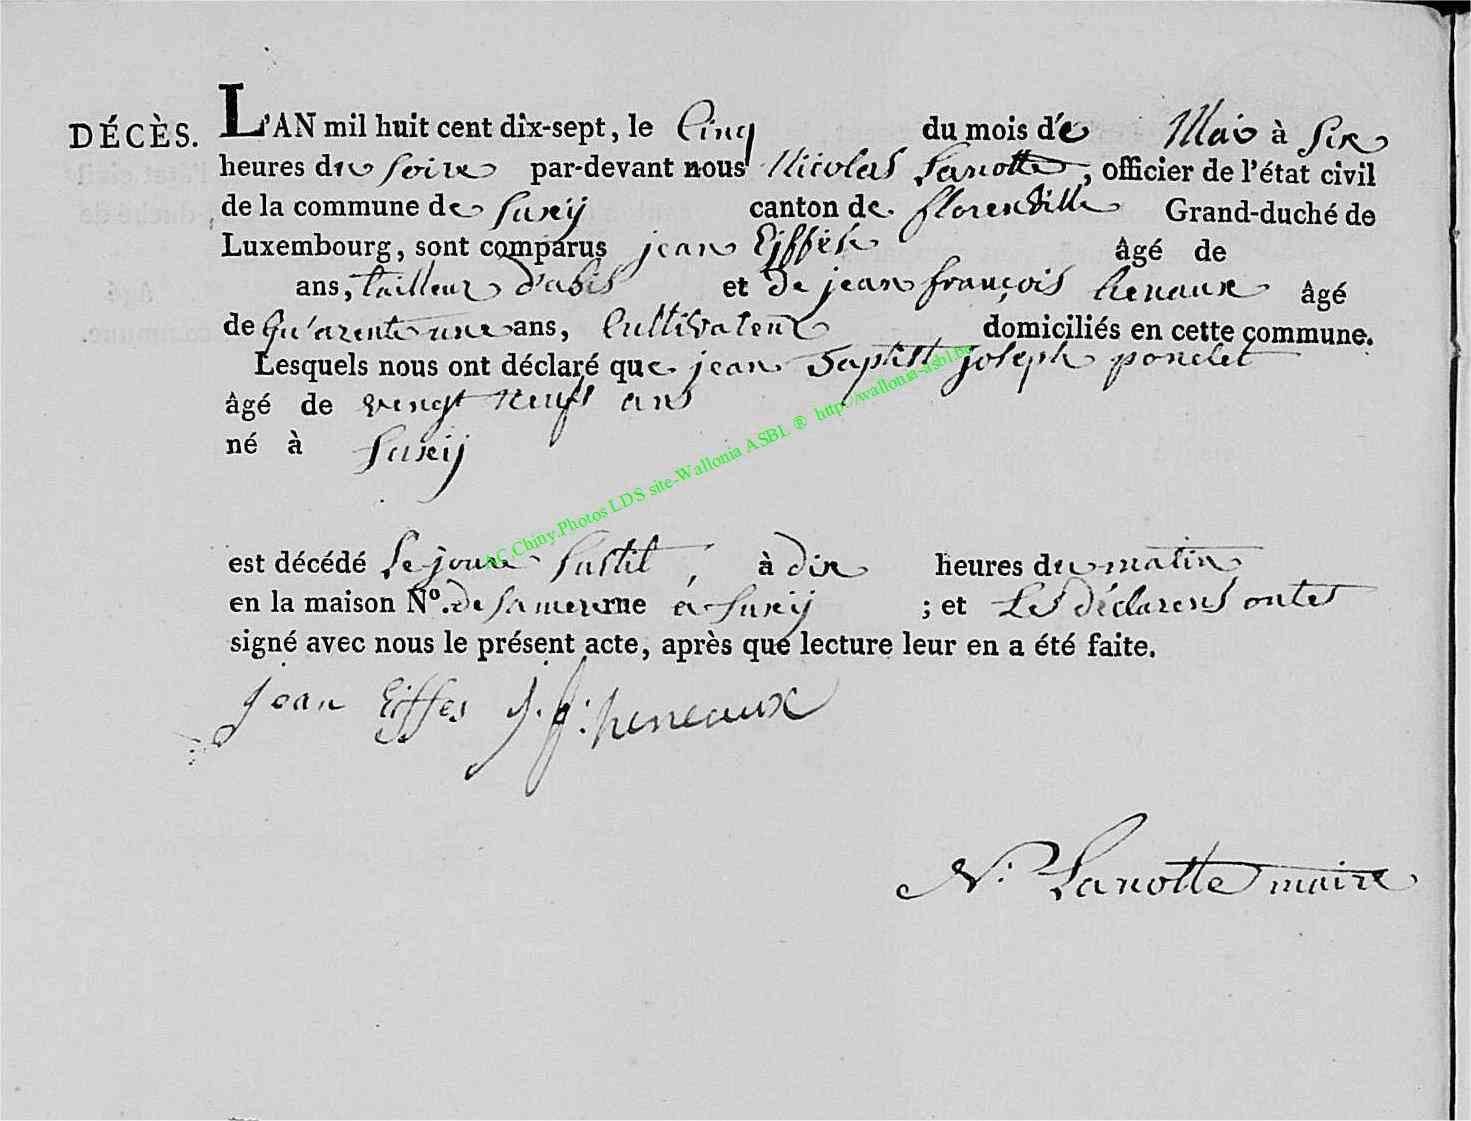 DÉCÈS. L'AN mil huit cent dix-sept, le Cinq du mois de Mai à Six
heures du Soire par-devant nous Nicolas Lanotte, officier de l'état civil
de la commune de Suxÿ canton de florenville Grand-duché de
Luxembourg, sont comparus jean Eiffes âgé de
ans, tailleur d'abis et de jean françois henaux âgé
de qu'arente une ans, Cultivateur domiciliés en cette commune.
Lesquels nous ont déclaré que jean Baptist joseph poncelet
âgé de vingt neufs ans
né à Suxÿ
est décédé Se jour Sustit, à dix heures du matin
en la maison Nº. de Sa mere rue à Suxÿ ; et Les déclarens ontes
signé avec nous le présent acte, après que lecture leur en a été faite.
jean Eiffes j. f: heneaux
N: Lanotte maire
AC.Chiny.Photos LDS site-Wallonia ASBL ® http://wallonia-asbl.be